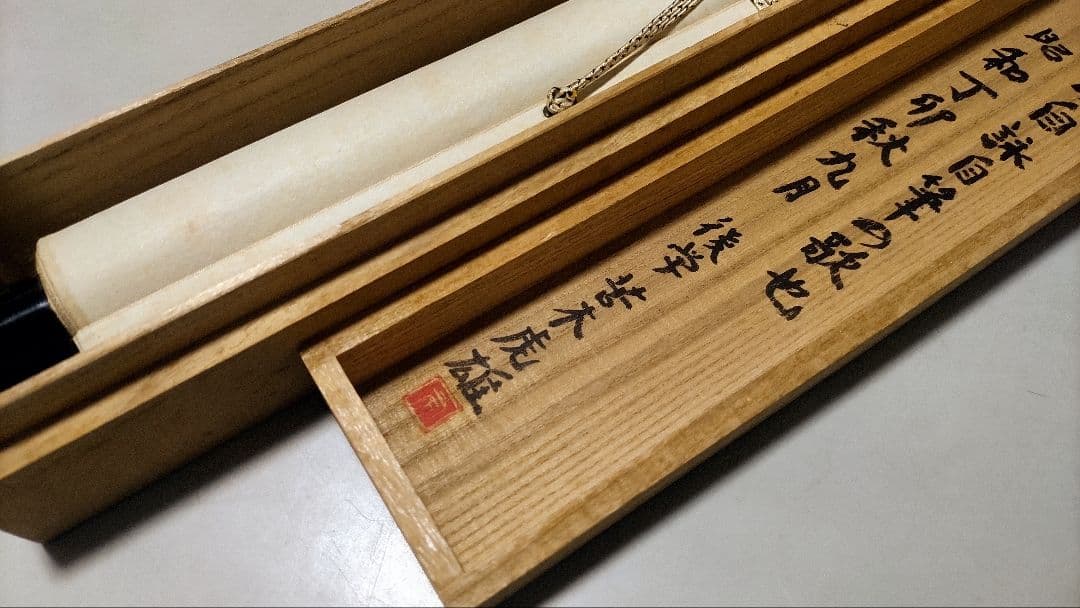 自詠自筆の歌也
昭和丁卯秋九月
後学 苦木虎雄